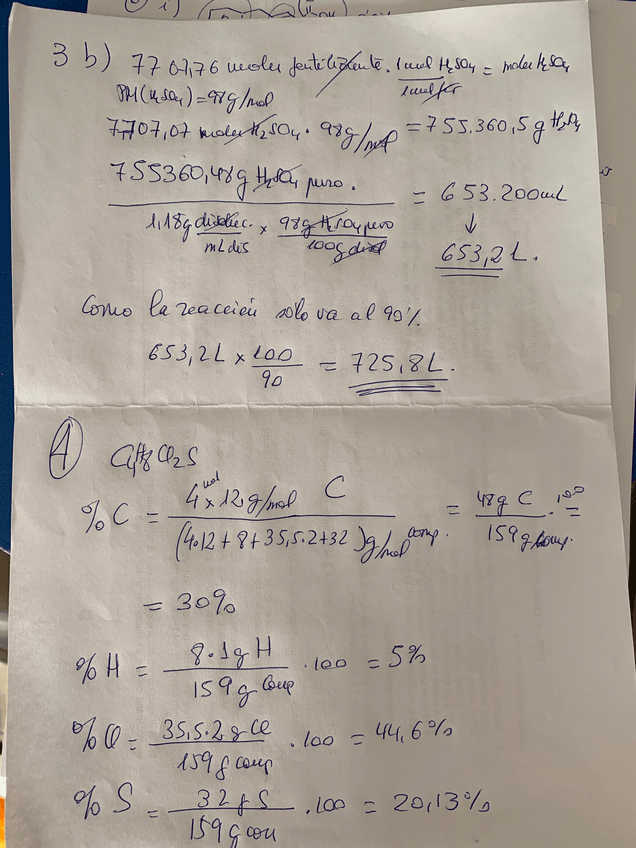 3 b) 7707,76 moles fertilizante · 1 mol H₂SO₄ / 1 mol fer = moles H₂SO₄
PM(H₂SO₄) = 98 g/mol
7707,07 moles H₂SO₄ · 98 g/mol = 755.360,5 g H₂SO₄
755360,48 g H₂SO₄ puro. / 1,18 g disoluc. / mL dis × 98 g H₂SO₄ puro / 100 g disol = 653.200 mL
↓
653,2 L.
Como la reacción solo va al 90%
653,2 L × 100 / 90 = 725,8 L.
④ C₄H₈Cl₂S
% C = 4 mol × 12 g/mol C / (4·12 + 8 + 35,5·2 + 32) g/mol comp. = 48 g C / 159 g comp. · 100 =
= 30%
% H = 8·1 g H / 159 g comp · 100 = 5%
% Cl = 35,5·2 g Cl / 159 g comp · 100 = 44,6%
% S = 32 g S / 159 g com · 100 = 20,13%